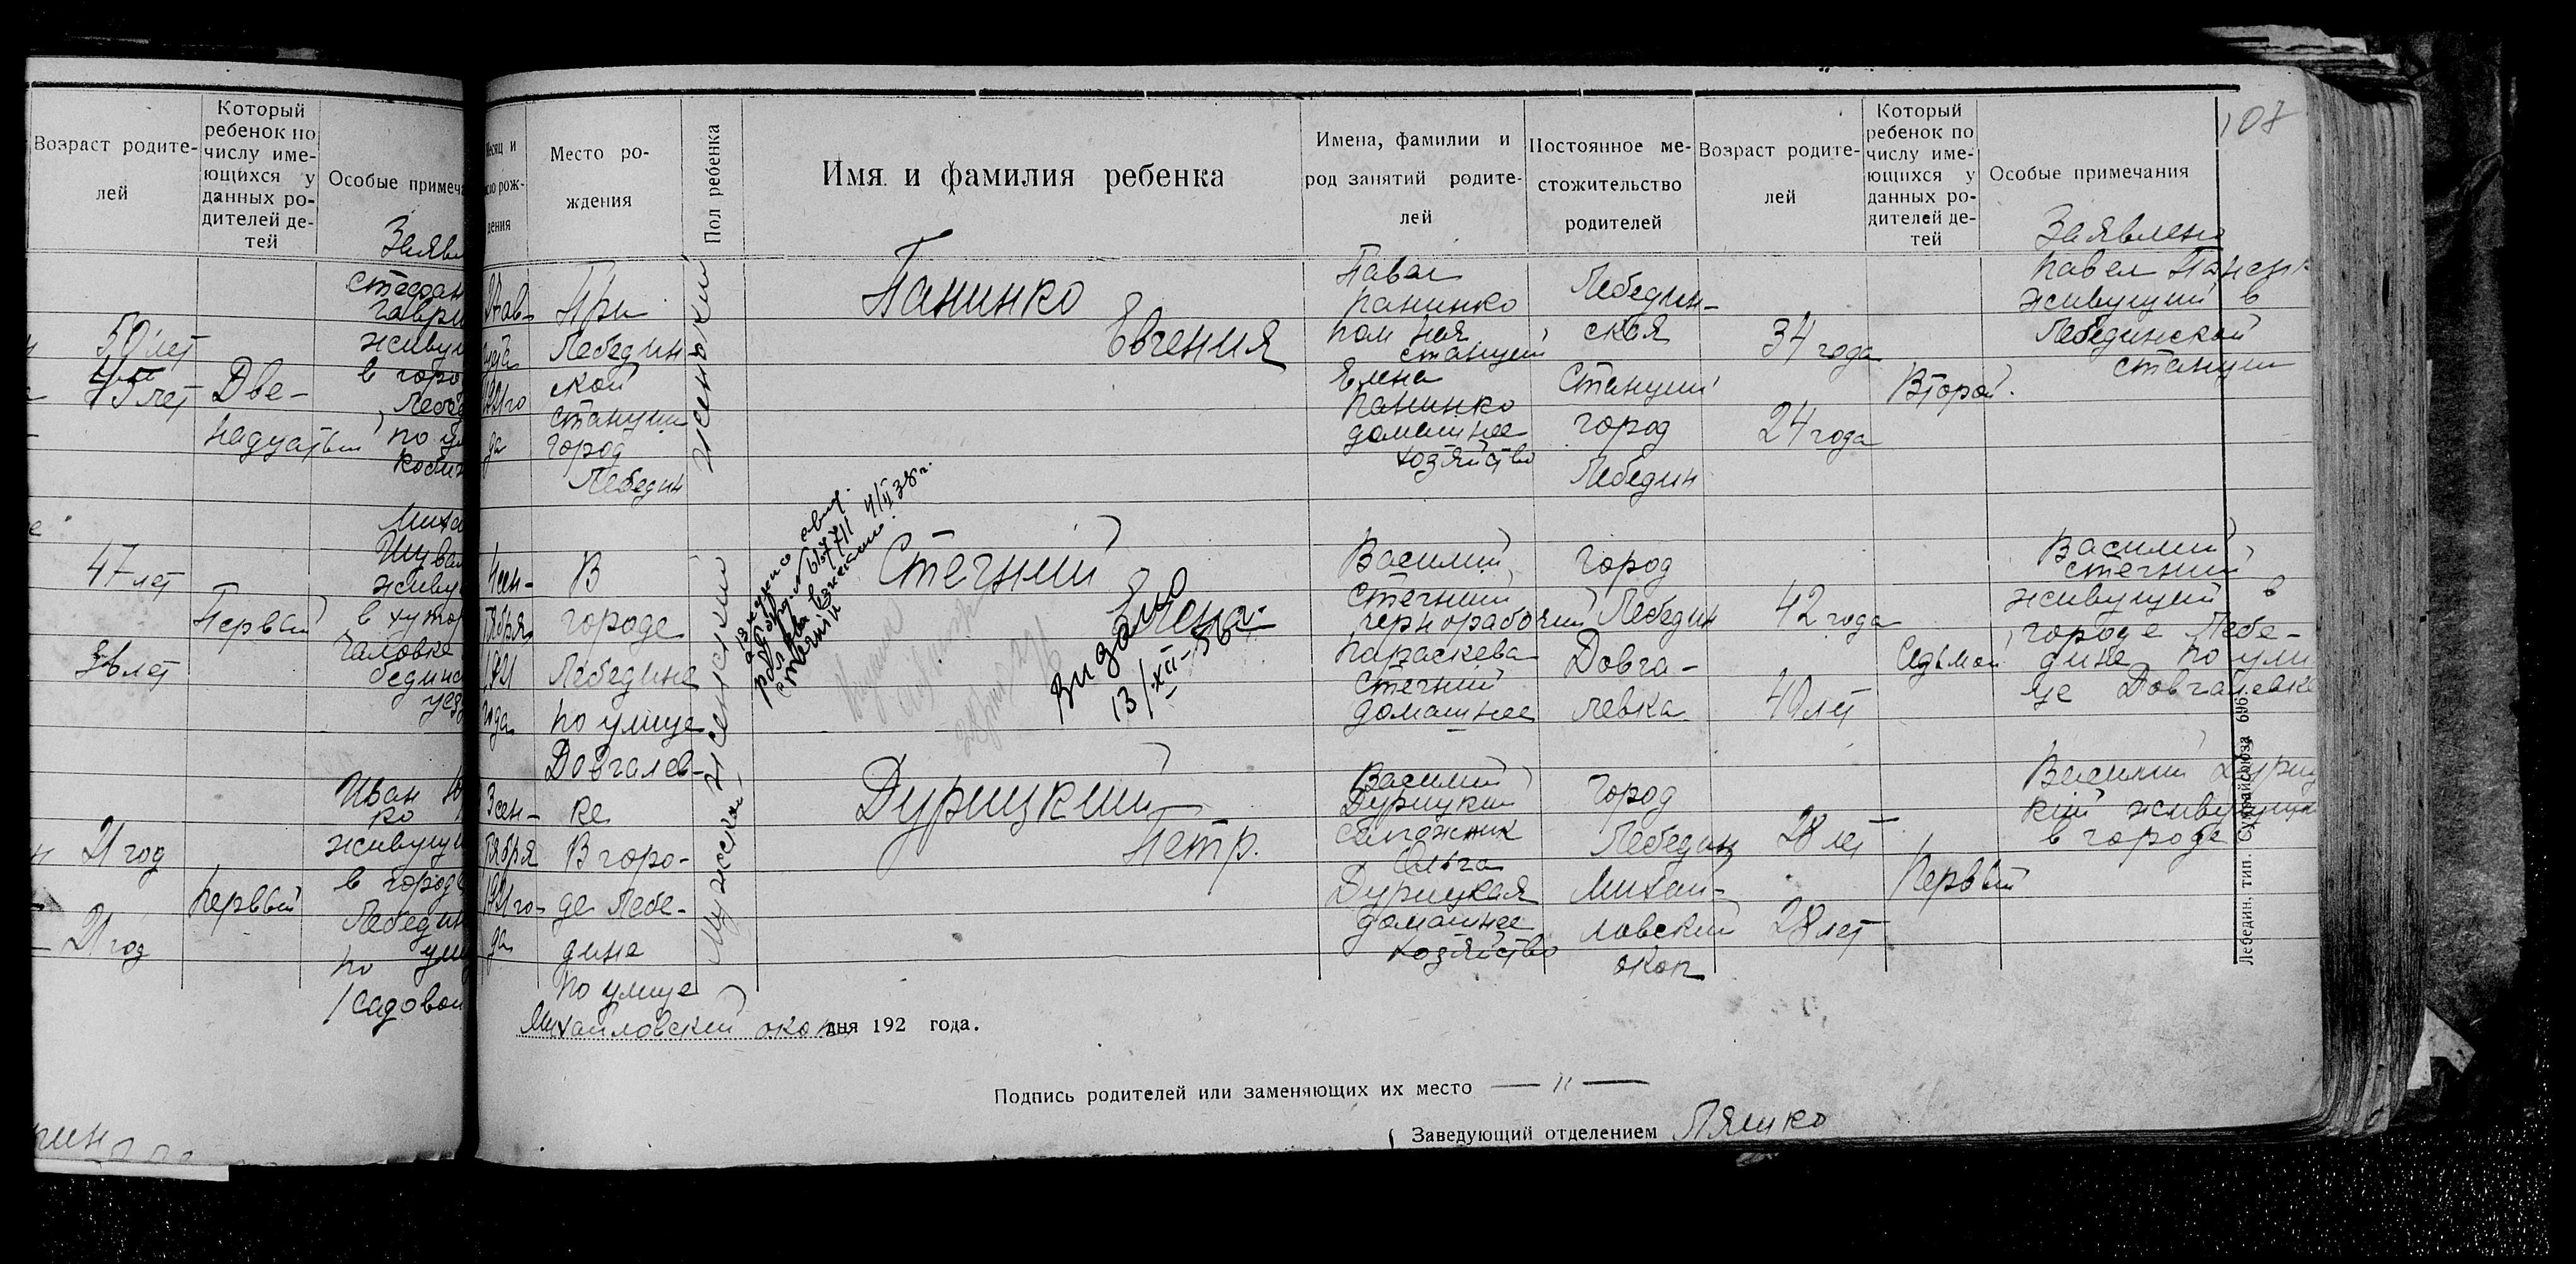 Возраст родите-
лей
Который
ребенок по
числу име-
ющихся у
данных ро-
дителей де-
тей
Особые примеча
Заявл
Стефан
Гаври
живу
в горо
Лебед
по ул
50 лет
45 лет
Две-
надцатый
47 лет
38 лет
Первый
Миха
живу
в хутор
бединс
уез
Иван
ко
живущи
в город
Лебедин
по ули
Садовой
21 год
21 год
первый
Месяц и
число рож-
дения
Место ро-
ждения
Пол ребенка
Имя и фамилия ребенка
Имена, фамилии и
род занятий родите-
лей
Постоянное ме-
стожительство
родителей
Возраст родите-
лей
Который
ребенок по
числу име-
ющихся у
данных ро-
дителей де-
тей
Особые примечания
107
Заявлено
1921го
да
При
Лебедин-
ской
станции
город
Лебедин
женский
Панинко
Евгения
Павел
Панинко
пом ная
станции
Елена
Панинко
домашнее
хозяйство
Лебедин-
ская
Станций
город
Лебедин
34 года
24 года
Второй.
Павел
живущий в
Лебединской
станции
4 сен-
тября
1921
года
В
городе
Лебедине
по улице
Довгалев-
ке
женский
Стегний
Елена
Выдано
13/XII-56
Василий
Стегний
чернорабочий
Параскева
Стегний
домашнее
город
Лебедин
Довга-
левка
42 года
40 лет
Седьмой
Василий
Стегний
живущий в
городе Лебе-
дине по ули
це Довгалевке
3 сен-
тября
1921го-
да
В горо-
де Лебе-
дине
по улице
Михайловский окоп
мужской
Дурицкий
Петр.
Василий
Дурицкий
сапожник
Ольга
Дурицкая
домашнее
хозяйство
город
Лебедин
Михай-
ловский
окоп
28 лет
28 лет
Первый
Василий Дуриц
кий живущий
в городе
дня 192 года.
Подпись родителей или заменяющих их место — " —
Заведующий отделением Ляшко
Лебедин, тип. Сумрайсоюза 696.